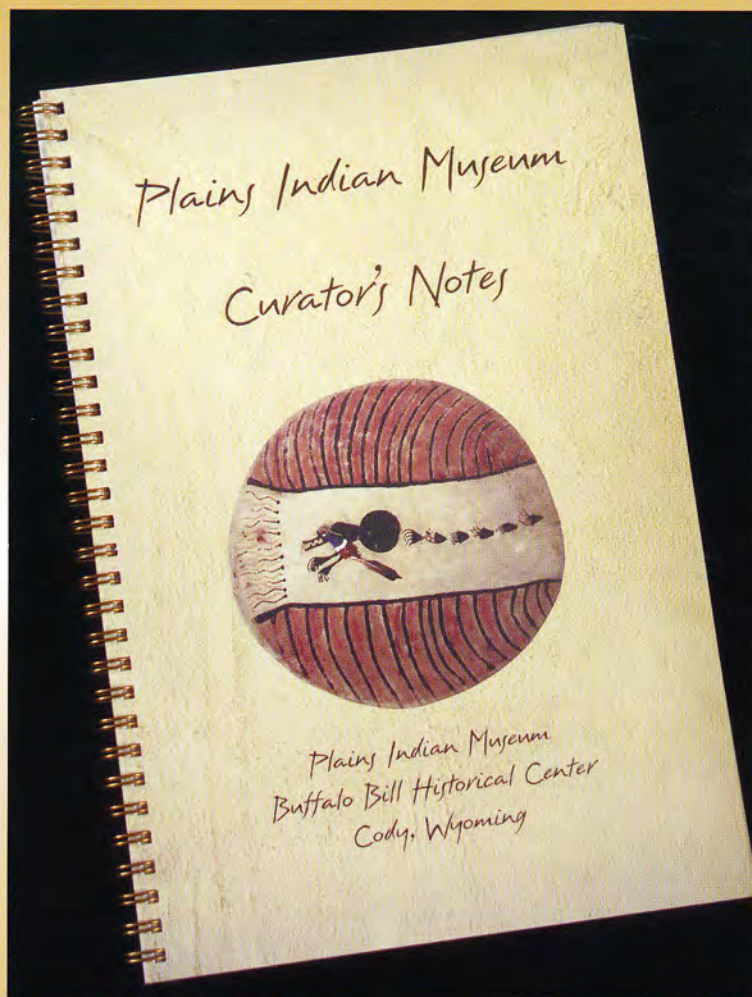 Plains Indian Museum
Curator's Notes
Plains Indian Museum
Buffalo Bill Historical Center
Cody, Wyoming